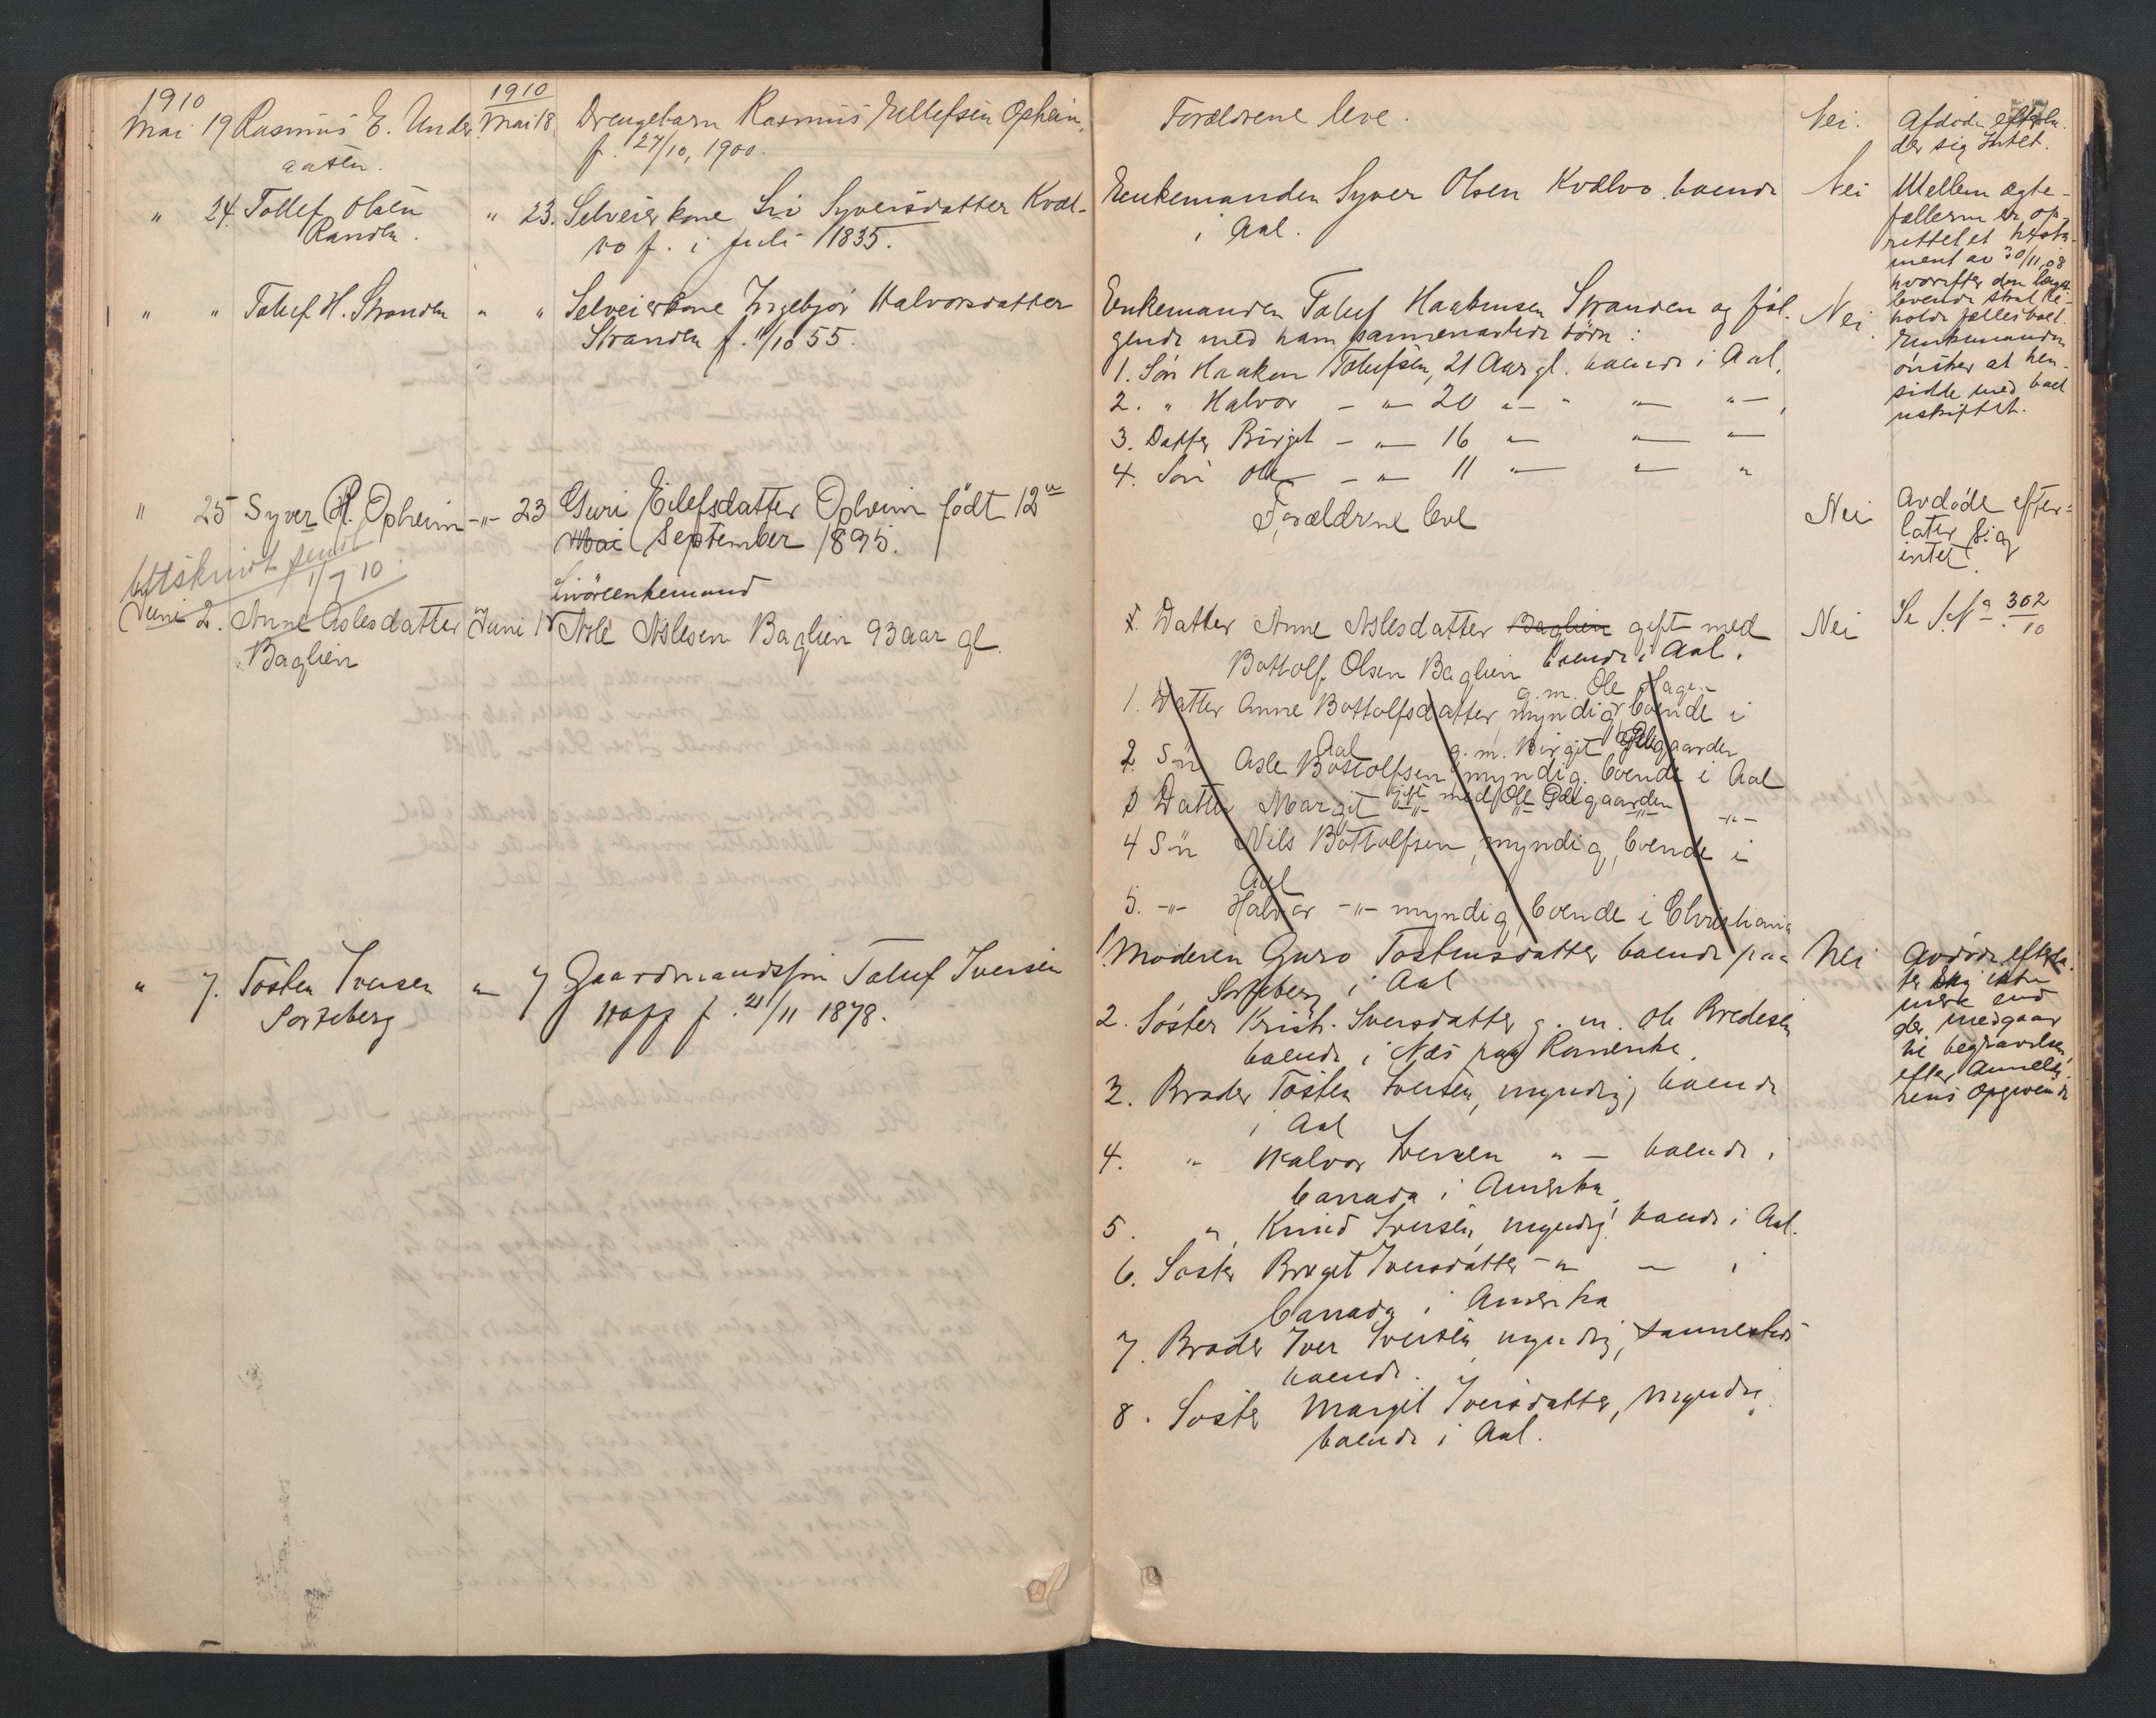 1910
Mai 19 Rasmus E. Under
aasen.
1910
Mai 18 Drengebarn Rasmus Ellefsen Opheim,
f. 27/10, 1900.
Forældrene leve.
Nei.
Afdøde efterla
der sig Intet.
" 24. Tollef Olsen
Randen.
" 23. Selveierkone Siri Syversdatter Kvæl-
vo f. i Juli 1835.
Enkemanden Syver Olsen Kvælvo boende
i Aal.
Nei
Mellem ægte-
fællerne er op-
rettet et testa-
ment av 30/11 08
hvorefter den længst-
levende skal be-
holde fælles boet.
Enkemanden
ønsker at hen-
sidde med boet
uskiftet.
" " Toluf H. Stranden
" " Selveierkone Ingebjør Halvorsdatter
Stranden f. 11/10 55.
Enkemanden Toluf Haakensen Stranden og føl-
gende med ham sammenavlede børn:
1. Søn Haaken Tolufsen, 21 Aar gl. boende i Aal,
2. " Halvor — " — 20 " — " " — " —,
3. Datter Birgit — " — 16 " — " — —
4. Søn Ole — " — 11 " — " — "
Nei
" 25 Syver H. Opheim
-"- 23 Guri Eilefsdatter Opheim født 12te
Mai September 1895.
Forældrene leve
Nei
Avdøde efter-
later sig
intet.
Utskrivt sendt
1/7 10.
Juni 2. Anne Aslesdatter
Baglien
Livøreenkemand
Juni 1 Asle Aslesen Baglien 93 aar gl.
1. Datter Anne Aslesdatter Baglien gift med
Bottolf Olsen Baglien boende i Aal.
g.m. Ole Hagen
1. Datter Anne Bottolfsdatter, myndig, boende i
Aal g.m. Birgit Gjelgaarden
2. Søn Asle Bottolfsen myndig. boende i Aal
gift med Ole Gjelgaarden
3 Datter Margit -"- -"- -"- -"-
4 Søn Nils Bottolfsen, myndig, boende i
Aal
5. -"- Halvor -"- myndig, boende i Christiania
Nei
Se S. No 302/10
" 7. Tosten Iversen
Sorteberg
" 7 Gaardmandssøn Toluf Iversen
Hoff f. 21/11 1878.
1. Moderen Guro Tostensdatter boende paa
Sorteberg i Aal
2. Søster Krist. Iversdatter g. m. Ole Bredesen
boende i Næs paa Romerike.
3. Broder Tosten Iversen, myndig, boende
i Aal
4. " Halvor Iversen " — boende i
Canada i Amerika.
5. " Knud Iversen, myndig, boende i Aal.
6. Søster Birgit Iversdatter — " — i
Canada i Amerika
7. Broder Iver Iversen, myndig, sammesteds
boende.
8. Søster Margit Iversdatter, myndig.
boende i Aal.
Nei
Avdøde efterla-
ter sig ikke
mere end
der medgaar
til begravelse,
efter Anmelde-
rens opgivende